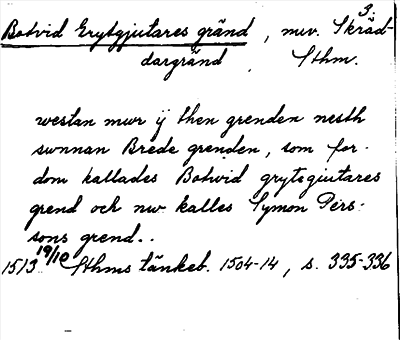 3.
Botvid Grytgjutares gränd, nuv. Skräd-
dargränd, Sthm.
westan mwr ÿ then grenden nesth
sunnan Brede grenden, som for-
dom kallades Botwid grytegiutares
grend och nw kalles Symon Pers-
sons grend..
1513 19/10 Sthms tänkeb. 1504-14, s. 335-336